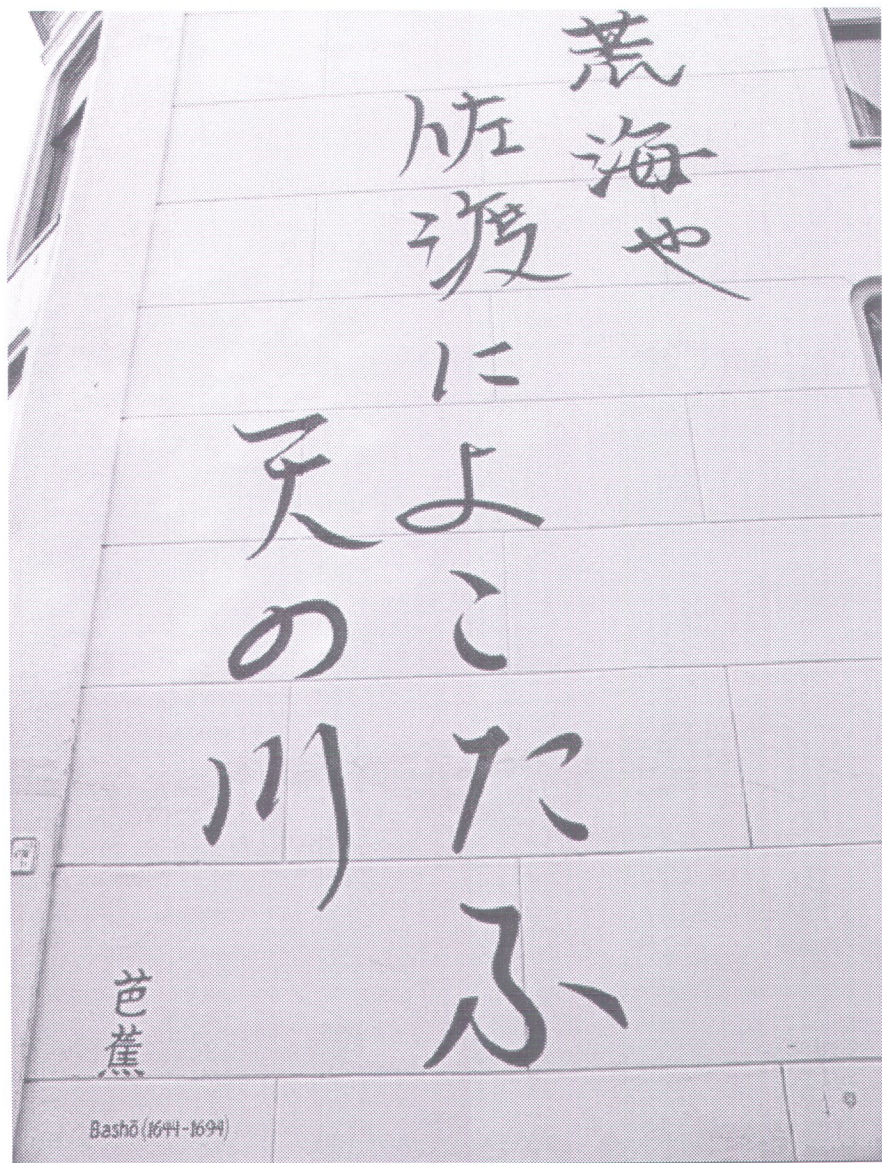 荒海や
佐渡によこたふ
天の川
芭蕉
Bashō (1644-1694)